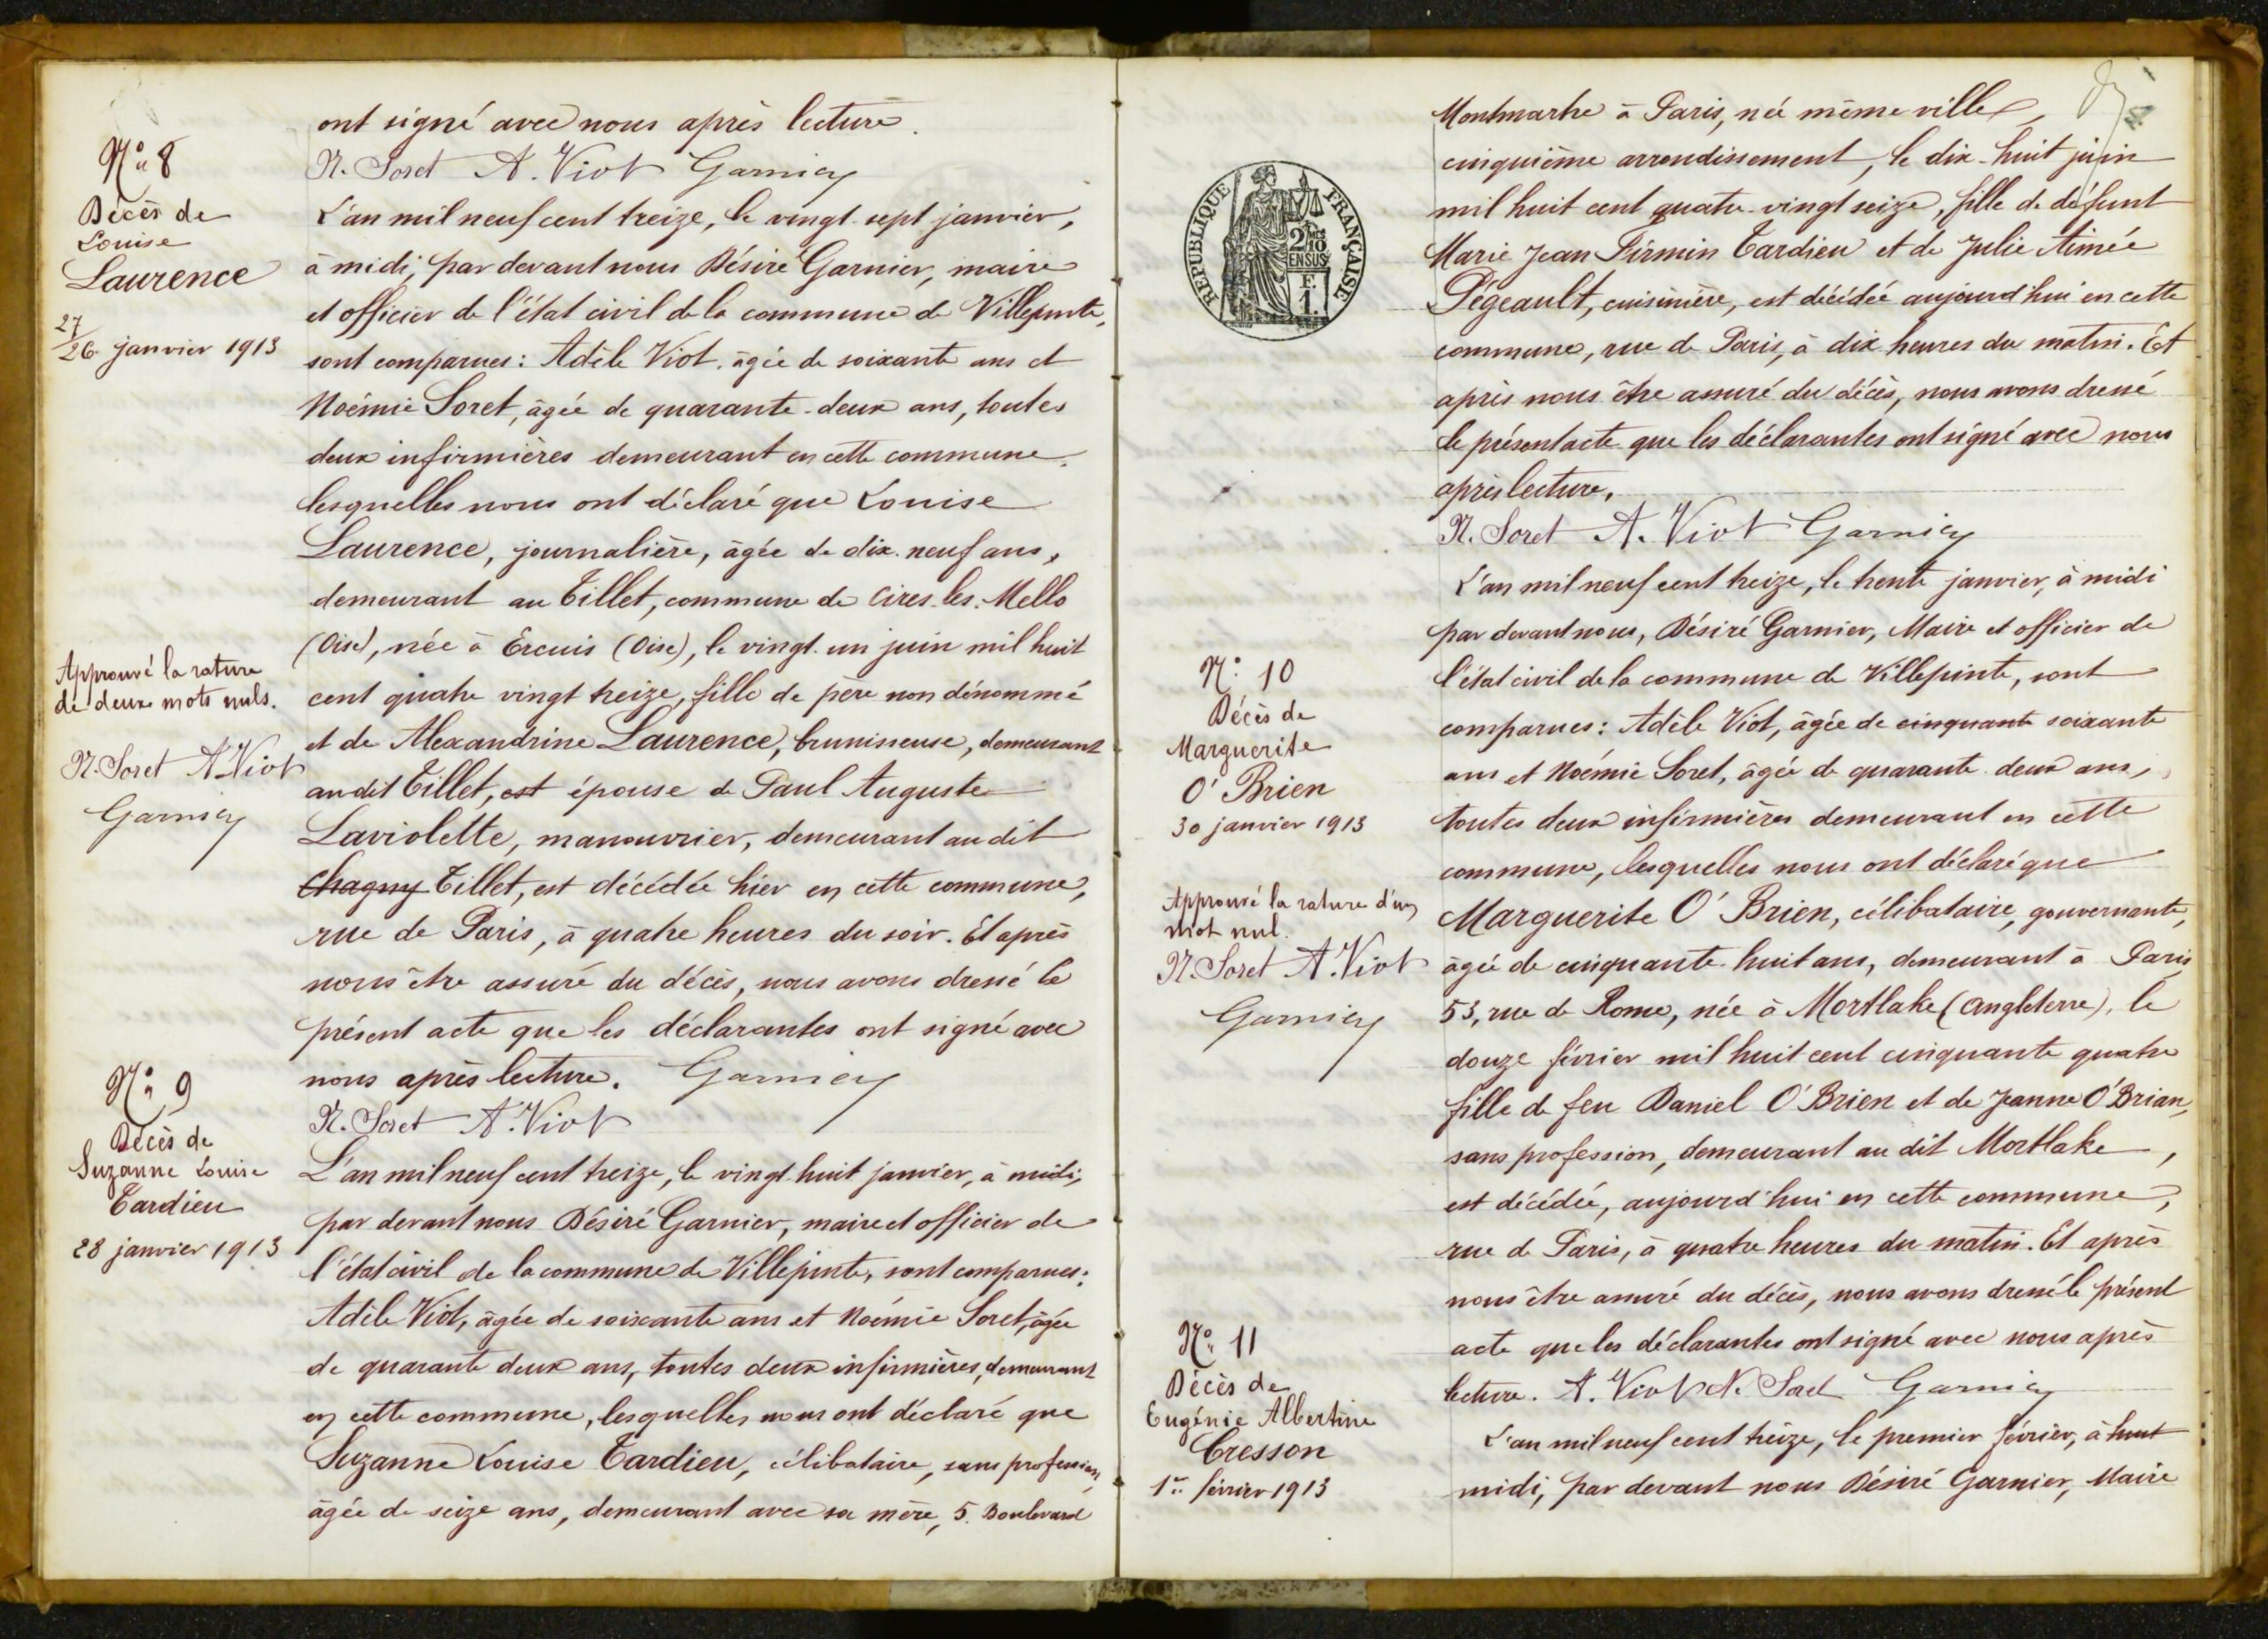 ont signé avec nous après lecture.
N. Soret A. Viot Garnier
N° 8
Décès de
Louise
Laurence
27/26 janvier 1913
L'an mil neuf cent treize, le vingt-sept janvier,
à midi, par devant nous Désiré Garnier, maire
et officier de l'état civil de la commune de Villepinte,
sont comparues: Adèle Viot, âgée de soixante ans et
Noémie Soret, âgée de quarante-deux ans, toutes
deux infirmières demeurant en cette commune,
lesquelles nous ont déclaré que Louise
Laurence, journalière, âgée de dix-neuf ans,
demeurant au Tillet, commune de Cires-les-Mello
(Oise), née à Ercuis (Oise), le vingt-un juin mil huit
cent quatre vingt treize, fille de père non dénommé
et de Alexandrine Laurence, brunisseuse, demeurant
au dit Tillet, est épouse de Paul Auguste
Laviolette, manouvrier, demeurant au dit
Chagny Tillet, est décédée hier en cette commune,
rue de Paris, à quatre heures du soir. Et après
nous être assuré du décès, nous avons dressé le
présent acte que les déclarantes ont signé avec
nous après lecture. Garnier
N. Soret A. Viot
Approuvé la rature
de deux mots nuls.
N. Soret A. Viot
Garnier
N° 9
Décès de
Suzanne Louise
Tardieu
28 janvier 1913
L'an mil neuf cent treize, le vingt-huit janvier, à midi,
par devant nous Désiré Garnier, maire et officier de
l'état civil de la commune de Villepinte, sont comparues:
Adèle Viot, âgée de soixante ans et Noémie Soret, âgée
de quarante deux ans, toutes deux infirmières, demeurant
en cette commune, lesquelles nous ont déclaré que
Suzanne Louise Tardieu, célibataire, sans profession,
âgée de seize ans, demeurant avec sa mère, 5. Boulevard
Montmartre à Paris, née même ville,
cinquième arrondissement, le dix-huit juin
mil huit cent quatre-vingt seize, fille de défunt
Marie Jean Firmin Tardieu et de Julie Aimée
Pégeault, cuisinière, est décédée aujourd'hui en cette
commune, rue de Paris, à dix heures du matin. Et
après nous être assuré du décès, nous avons dressé
le présent acte que les déclarantes ont signé avec nous
après lecture.
N. Soret A. Viot Garnier
REPUBLIQUE FRANÇAISE
2/10
EN SUS
F.
1.
N° 10
Décès de
Marguerite
O'Brien
30 janvier 1913
L'an mil neuf cent treize, le trente janvier, à midi
par devant nous, Désiré Garnier, Maire et officier de
l'état civil de la commune de Villepinte, sont
comparues: Adèle Viot, âgée de cinquante soixante
ans et Noémie Soret, âgée de quarante deux ans,
toutes deux infirmières demeurant en cette
commune, lesquelles nous ont déclaré que
Marguerite O'Brien, célibataire, gouvernante,
âgée de cinquante-huit ans, demeurant à Paris
53, rue de Rome, née à Mortlake (Angleterre), le
douze février mil huit cent cinquante quatre
fille de feu Daniel O'Brien et de Jeanne O'Brian,
sans profession, demeurant au dit Mortlake,
est décédée, aujourd'hui en cette commune,
rue de Paris, à quatre heures du matin. Et après
nous être assuré du décès, nous avons dressé le présent
acte que les déclarantes ont signé avec nous après
lecture. A. Viot N. Soret Garnier
Approuvé la rature d'un
mot nul.
N. Soret A. Viot
Garnier
N° 11
Décès de
Eugénie Albertine
Cresson
1er février 1913
L'an mil neuf cent treize, le premier février, à
midi, par devant nous Désiré Garnier, Maire